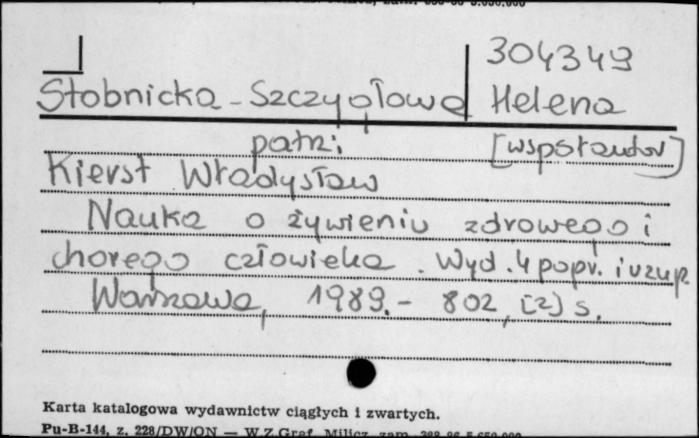 304349
Stobnicka-Szczygłowa Helena
patrz: [współautor]
Kierst Władysław
Nauka o żywieniu zdrowego i
chorego człowieka. Wyd. 4 popr. i uzup.
Warszawa, 1989. - 802, [2] s.
Karta katalogowa wydawnictw ciągłych i zwartych.
Pu-B-144, z. 228/DW/ON — W.Z.Graf. Milicz, zam.